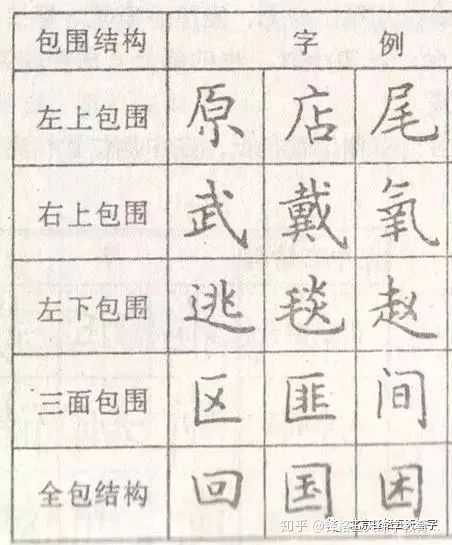 包围结构 字例
左上包围 原 店 尾
右上包围 武 戴 氧
左下包围 逃 毯 赵
三面包围 区 匪 间
全包结构 回 国 困
知乎